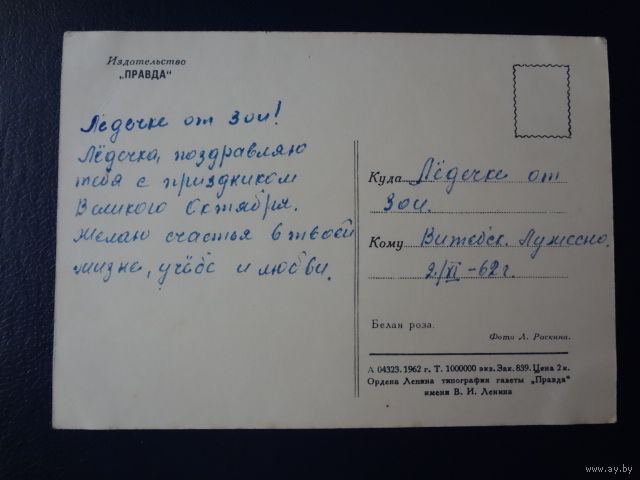 Издательство
„ПРАВДА“
Лёдечке от Зои!
Лёдечка, поздравляю
тебя с праздником
Великого Октября.
Желаю счастья в твоей
жизни, учёбе и любви.
Куда Лёдечке от
Зои.
Кому Витебск. Лужесно.
2/XI-62г.
Белая роза.
Фото Л. Раскина.
А 04323. 1962 г. Т. 1000000 экз. Зак. 839. Цена 2 к.
Ордена Ленина типография газеты „Правда“
имени В. И. Ленина
www.ay.by